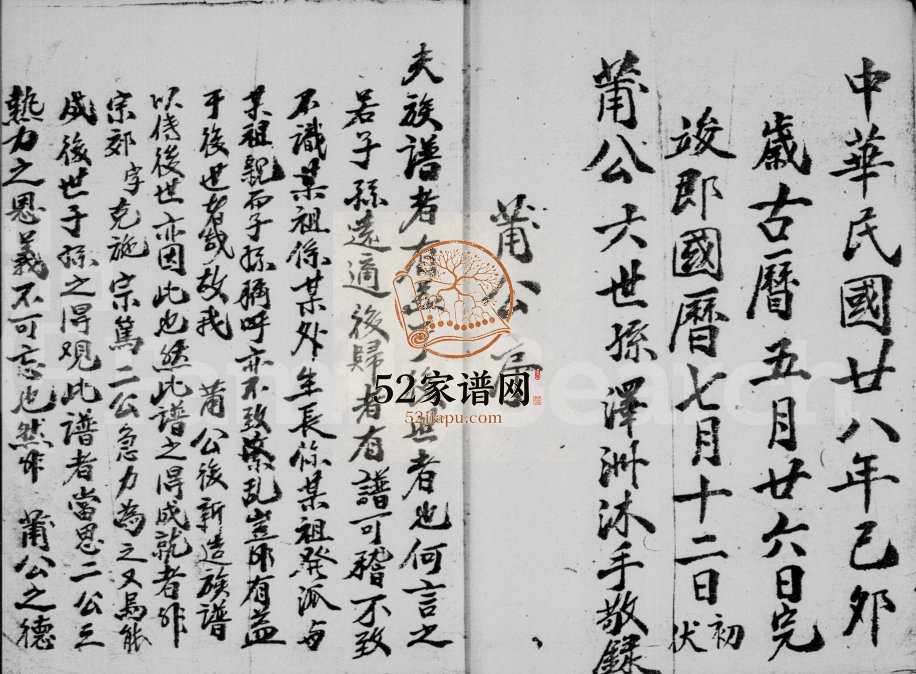 中華民國廿八年己卯
歲古曆五月廿六日完
竣即國曆七月十二日初伏
莆公六世孫澤洲沐手敬錄
莆公
夫族譜者有益于後世者也何言之
若子孫遠適後歸者有譜可稽不致
不識某祖係某外生長係某祖發派與
某祖親而子孫稱呼亦不致紊乱豈非有益
于後世者哉故我 莆公後新造族譜
以傳後世亦因此也然此譜之得成就者非
宗郊字克旋宗篤二公急力為之又焉能
成後世子孫之得观此譜者當思二公之
熱力之恩義不可忘也然非 莆公之德
52家谱网
52jiapu.com